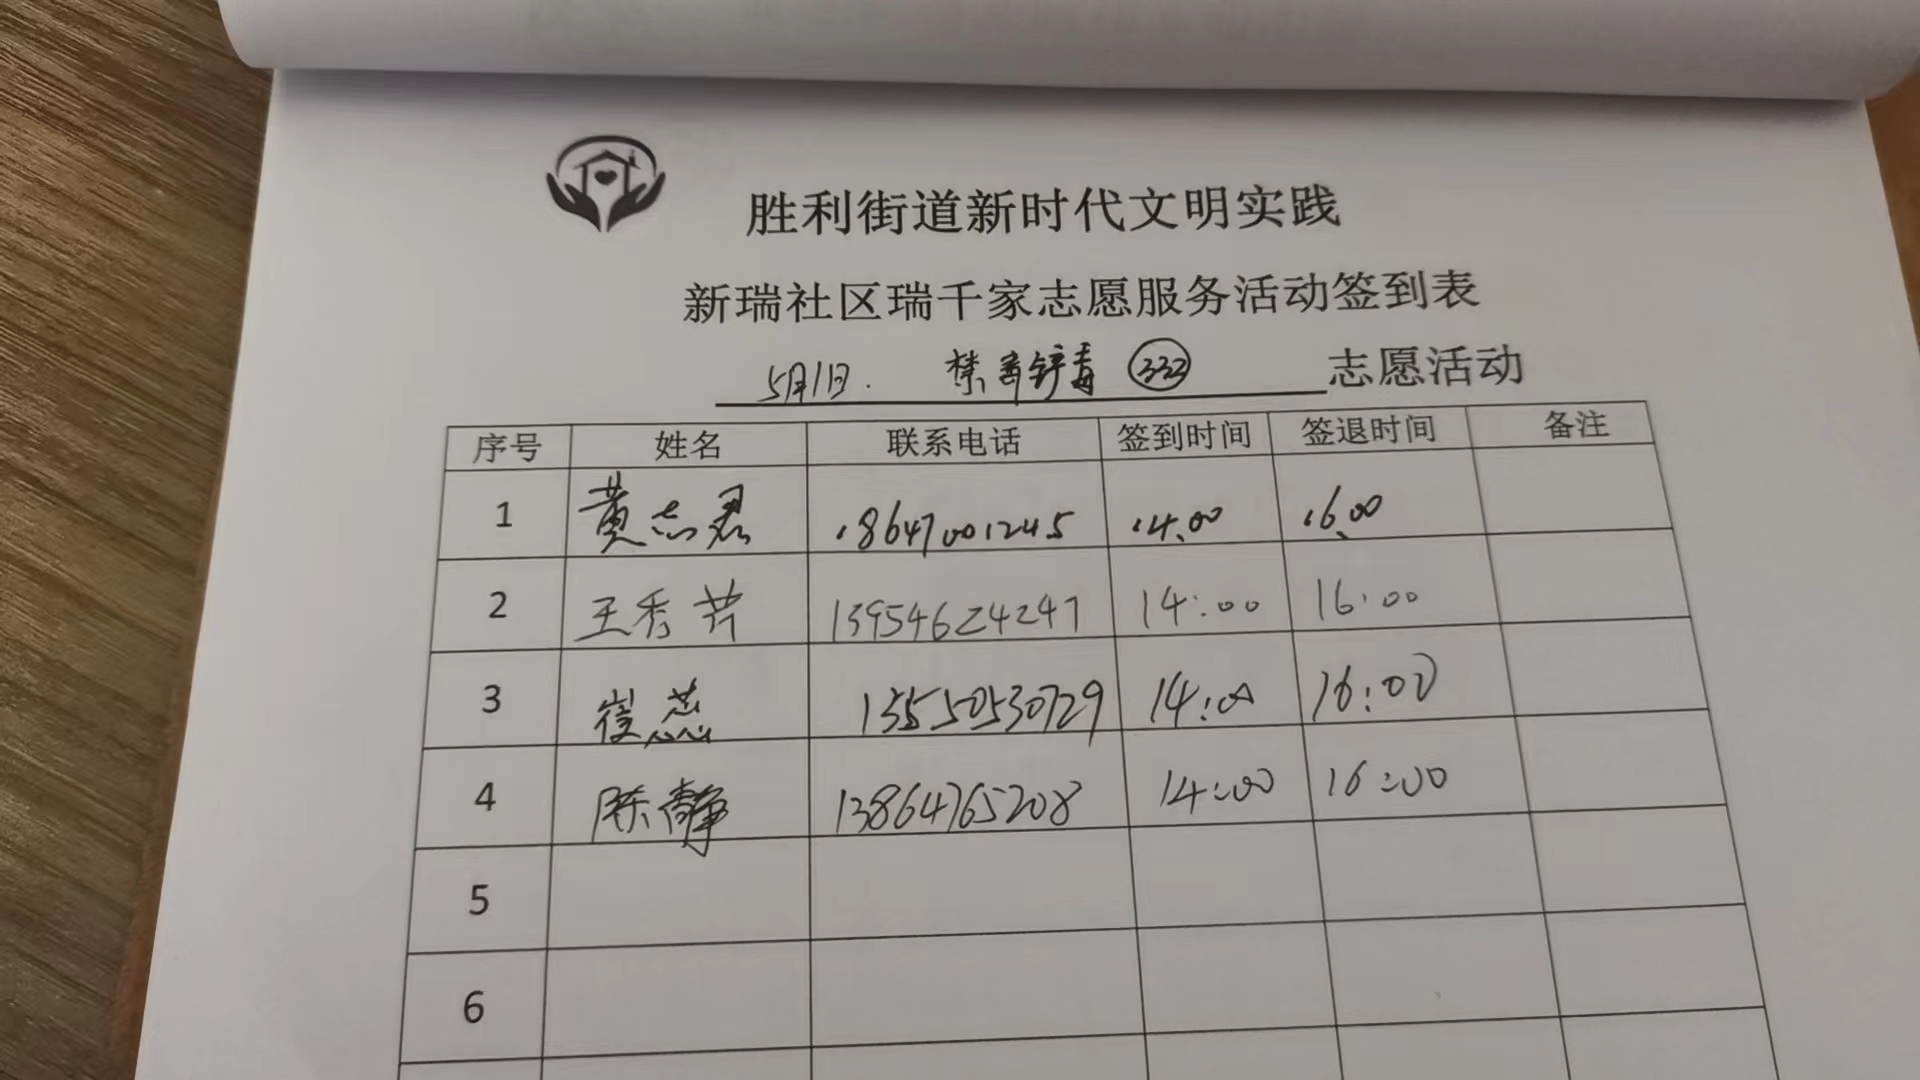 胜利街道新时代文明实践
新瑞社区瑞千家志愿服务活动签到表
5月1日. 禁毒铲毒 332 志愿活动
序号 姓名 联系电话 签到时间 签退时间 备注
1 黄志君 18647001245 14:00 16:00
2 王秀芹 13954624247 14:00 16:00
3 崔蕊 13550530729 14:00 16:00
4 陈静 13864765208 14:00 16:00
5
6